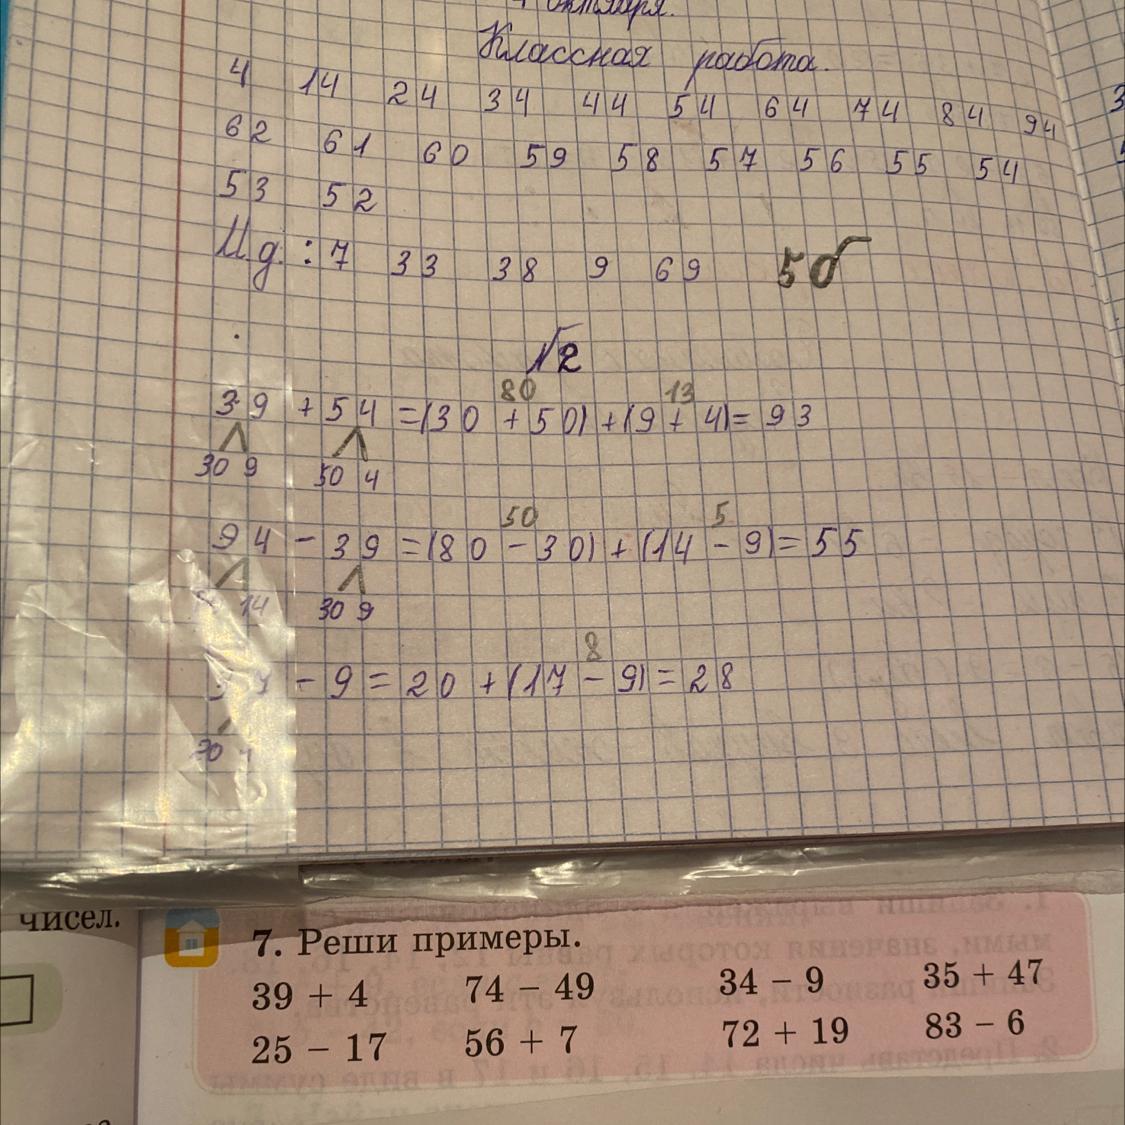 октября.
Классная работа.
4 14 24 34 44 54 64 74 84 94
62 61 60 59 58 57 56 55 54
53 52
Мд.: 7 33 38 9 69 5б
№2
80 13
39 + 54 = (30 + 50) + (9 + 4) = 93
30 9 50 4
50 5
94 - 39 = (80 - 30) + (14 - 9) = 55
14 30 9
8
- 9 = 20 + (17 - 9) = 28
чисел.
7. Реши примеры.
39 + 4 74 − 49 34 − 9 35 + 47
25 − 17 56 + 7 72 + 19 83 − 6